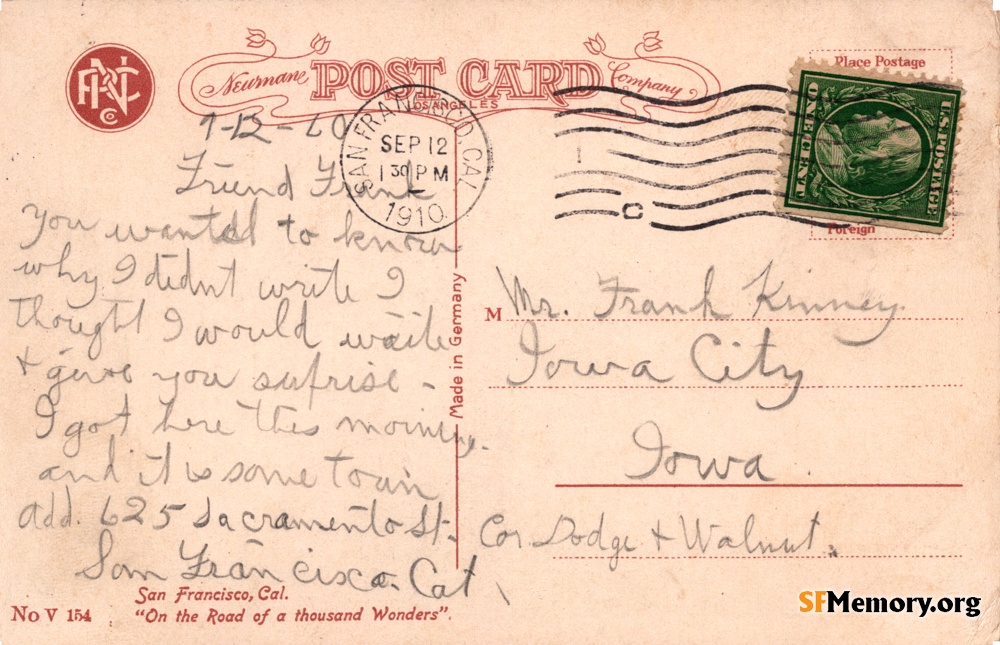 PNC Co
Newman Post Card Company
Los Angeles
Place Postage
Foreign
U.S. POSTAGE
ONE CENT
SAN FRANCISCO, CAL.
SEP 12
1 30 PM
1910
C
9-12-10
Friend Frank
You wanted to know
why I didnt write I
thought I would waite
+ give you suprise -
I got here this morning.
and it is some town
add. 625 Sacramento St.
San Francisco. Cal
Made in Germany
M Mr. Frank Kinney
Iowa City
Iowa.
Cor Dodge + Walnut.
No V 154
San Francisco, Cal.
"On the Road of a thousand Wonders".
SFMemory.org